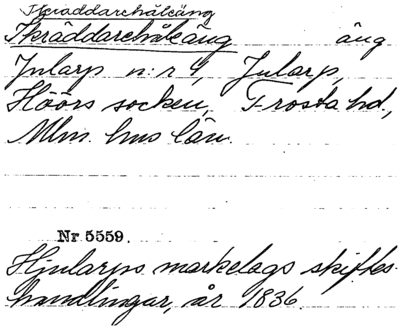 Skräddarehålsäng
Skräddarehålsäng äng
Jularp n:r 4, Jularp,
Höörs socken, Frosta hd.,
Mlm. hus län.
Nr 5559.
Hjularps markelags skiftes-
handlingar, år 1836.